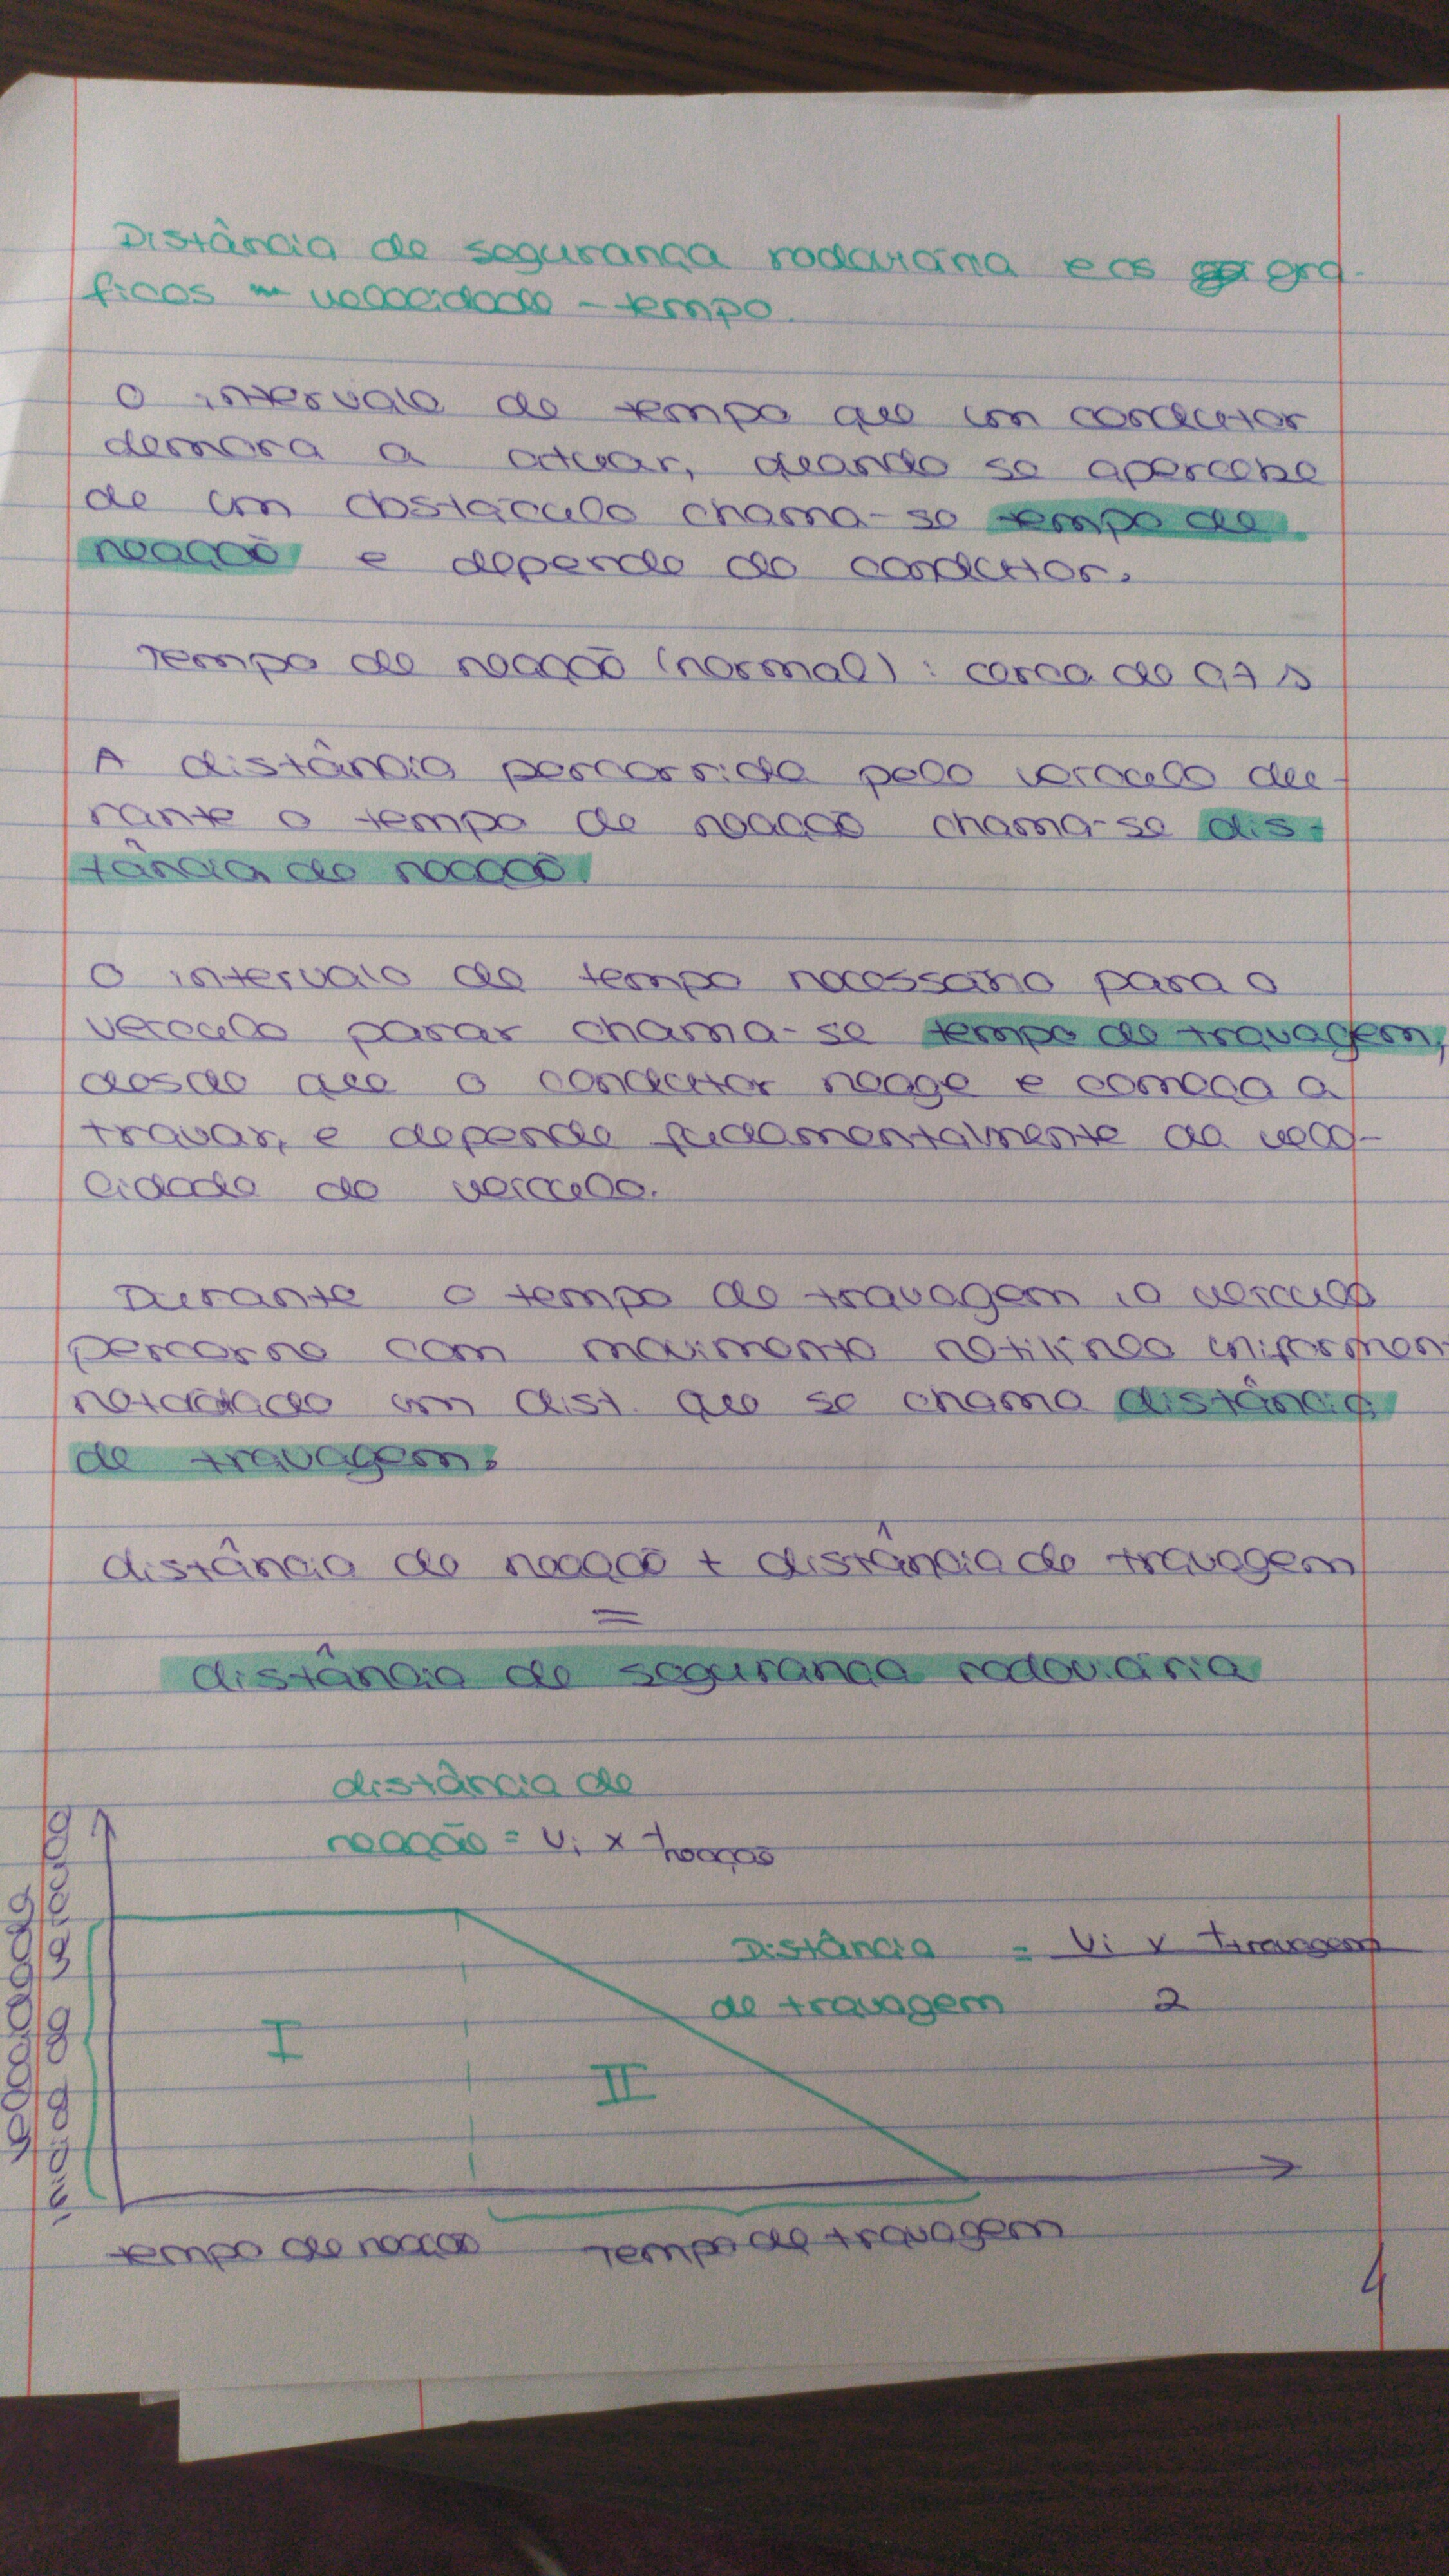 Distância de segurança rodoviária e os grá-
ficos velocidade - tempo.
O intervalo de tempo que um condutor
demora a actuar, quando se apercebe
de um obstáculo chama-se tempo de
reacção e depende do condutor.
Tempo de reacção (normal) : cerca de 0,7 s
A distância percorrida pelo veículo du-
rante o tempo de reacção chama-se dis-
tância de reacção.
O intervalo de tempo necessário para o
veículo parar chama-se tempo de travagem,
desde que o condutor reage e começa a
travar, e depende fudamentalmente da velo-
cidade do veículo.
Durante o tempo de travagem, o veículo
percorre com movimento retilíneo uniformen
retardado um dist. que se chama distância
de travagem.
distância de reacção + distância de travagem
=
distância de segurança rodoviária
distância de
reacção = Vi x treacção
Distância = Vi x travagem
de travagem 2
I
II
tempo de reacção Tempo de travagem
4